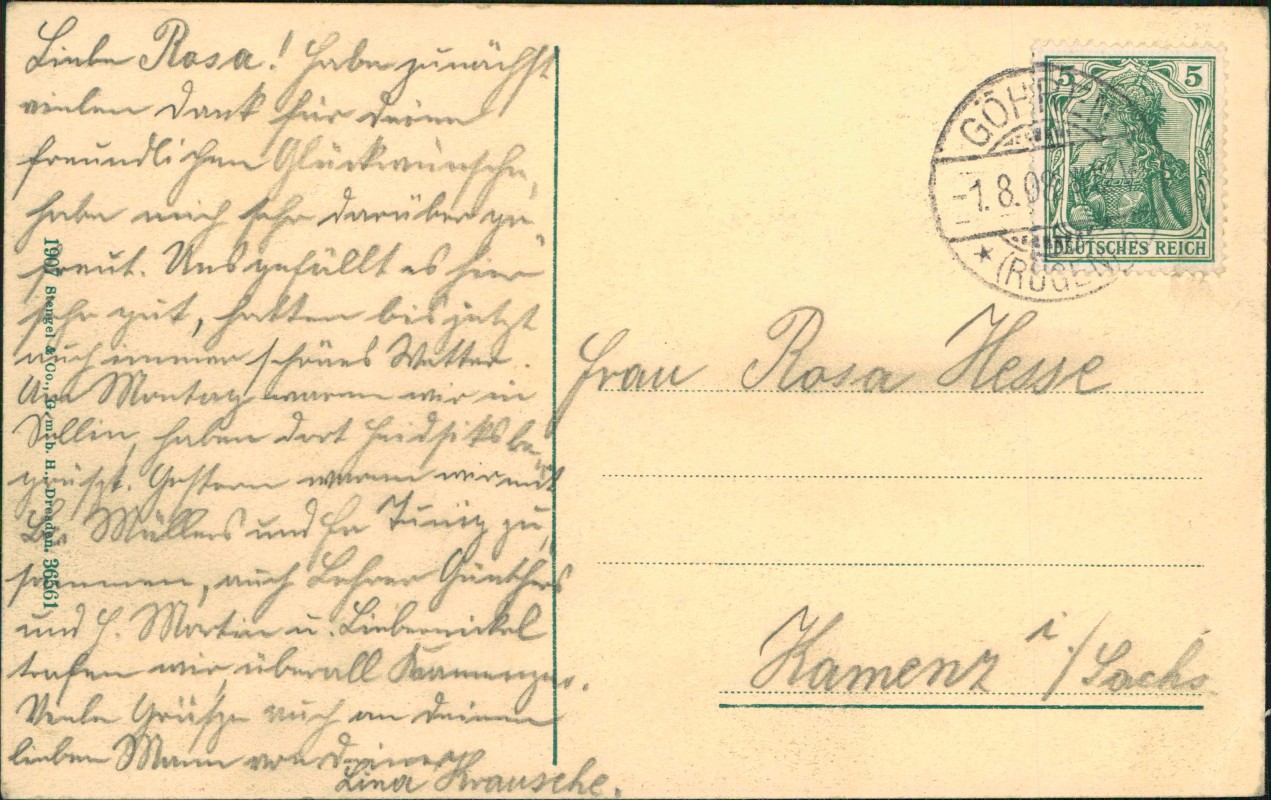 Liebe Rosa! Habe zunächst
vielen Dank für Deine
freundlichen Glückwünsche,
habe mich sehr darüber ge-
freut. Uns gefällt es hier
sehr gut, hatten bis jetzt
auch immer schönes Wetter.
Am Montag waren wir in
Sellin, haben dort Heidsiks be-
grüsst. Gestern waren wir mit
Müllers und Fr zu,
sammen, auch Lehrer Günthers
und H. Martin u. Liebernickel
trafen wir, überall Kamenzer.
Viele Grüsse auch an Deinen
lieben Mann von Deiner
Lina Krausche.
1907 Stengel & Co., G. m. b. H., Dresden. 36561
GÖHREN
-1.8.08
* (RÜGEN)
5 5
DEUTSCHES REICH
Frau Rosa Hesse
Kamenz i/Sachs